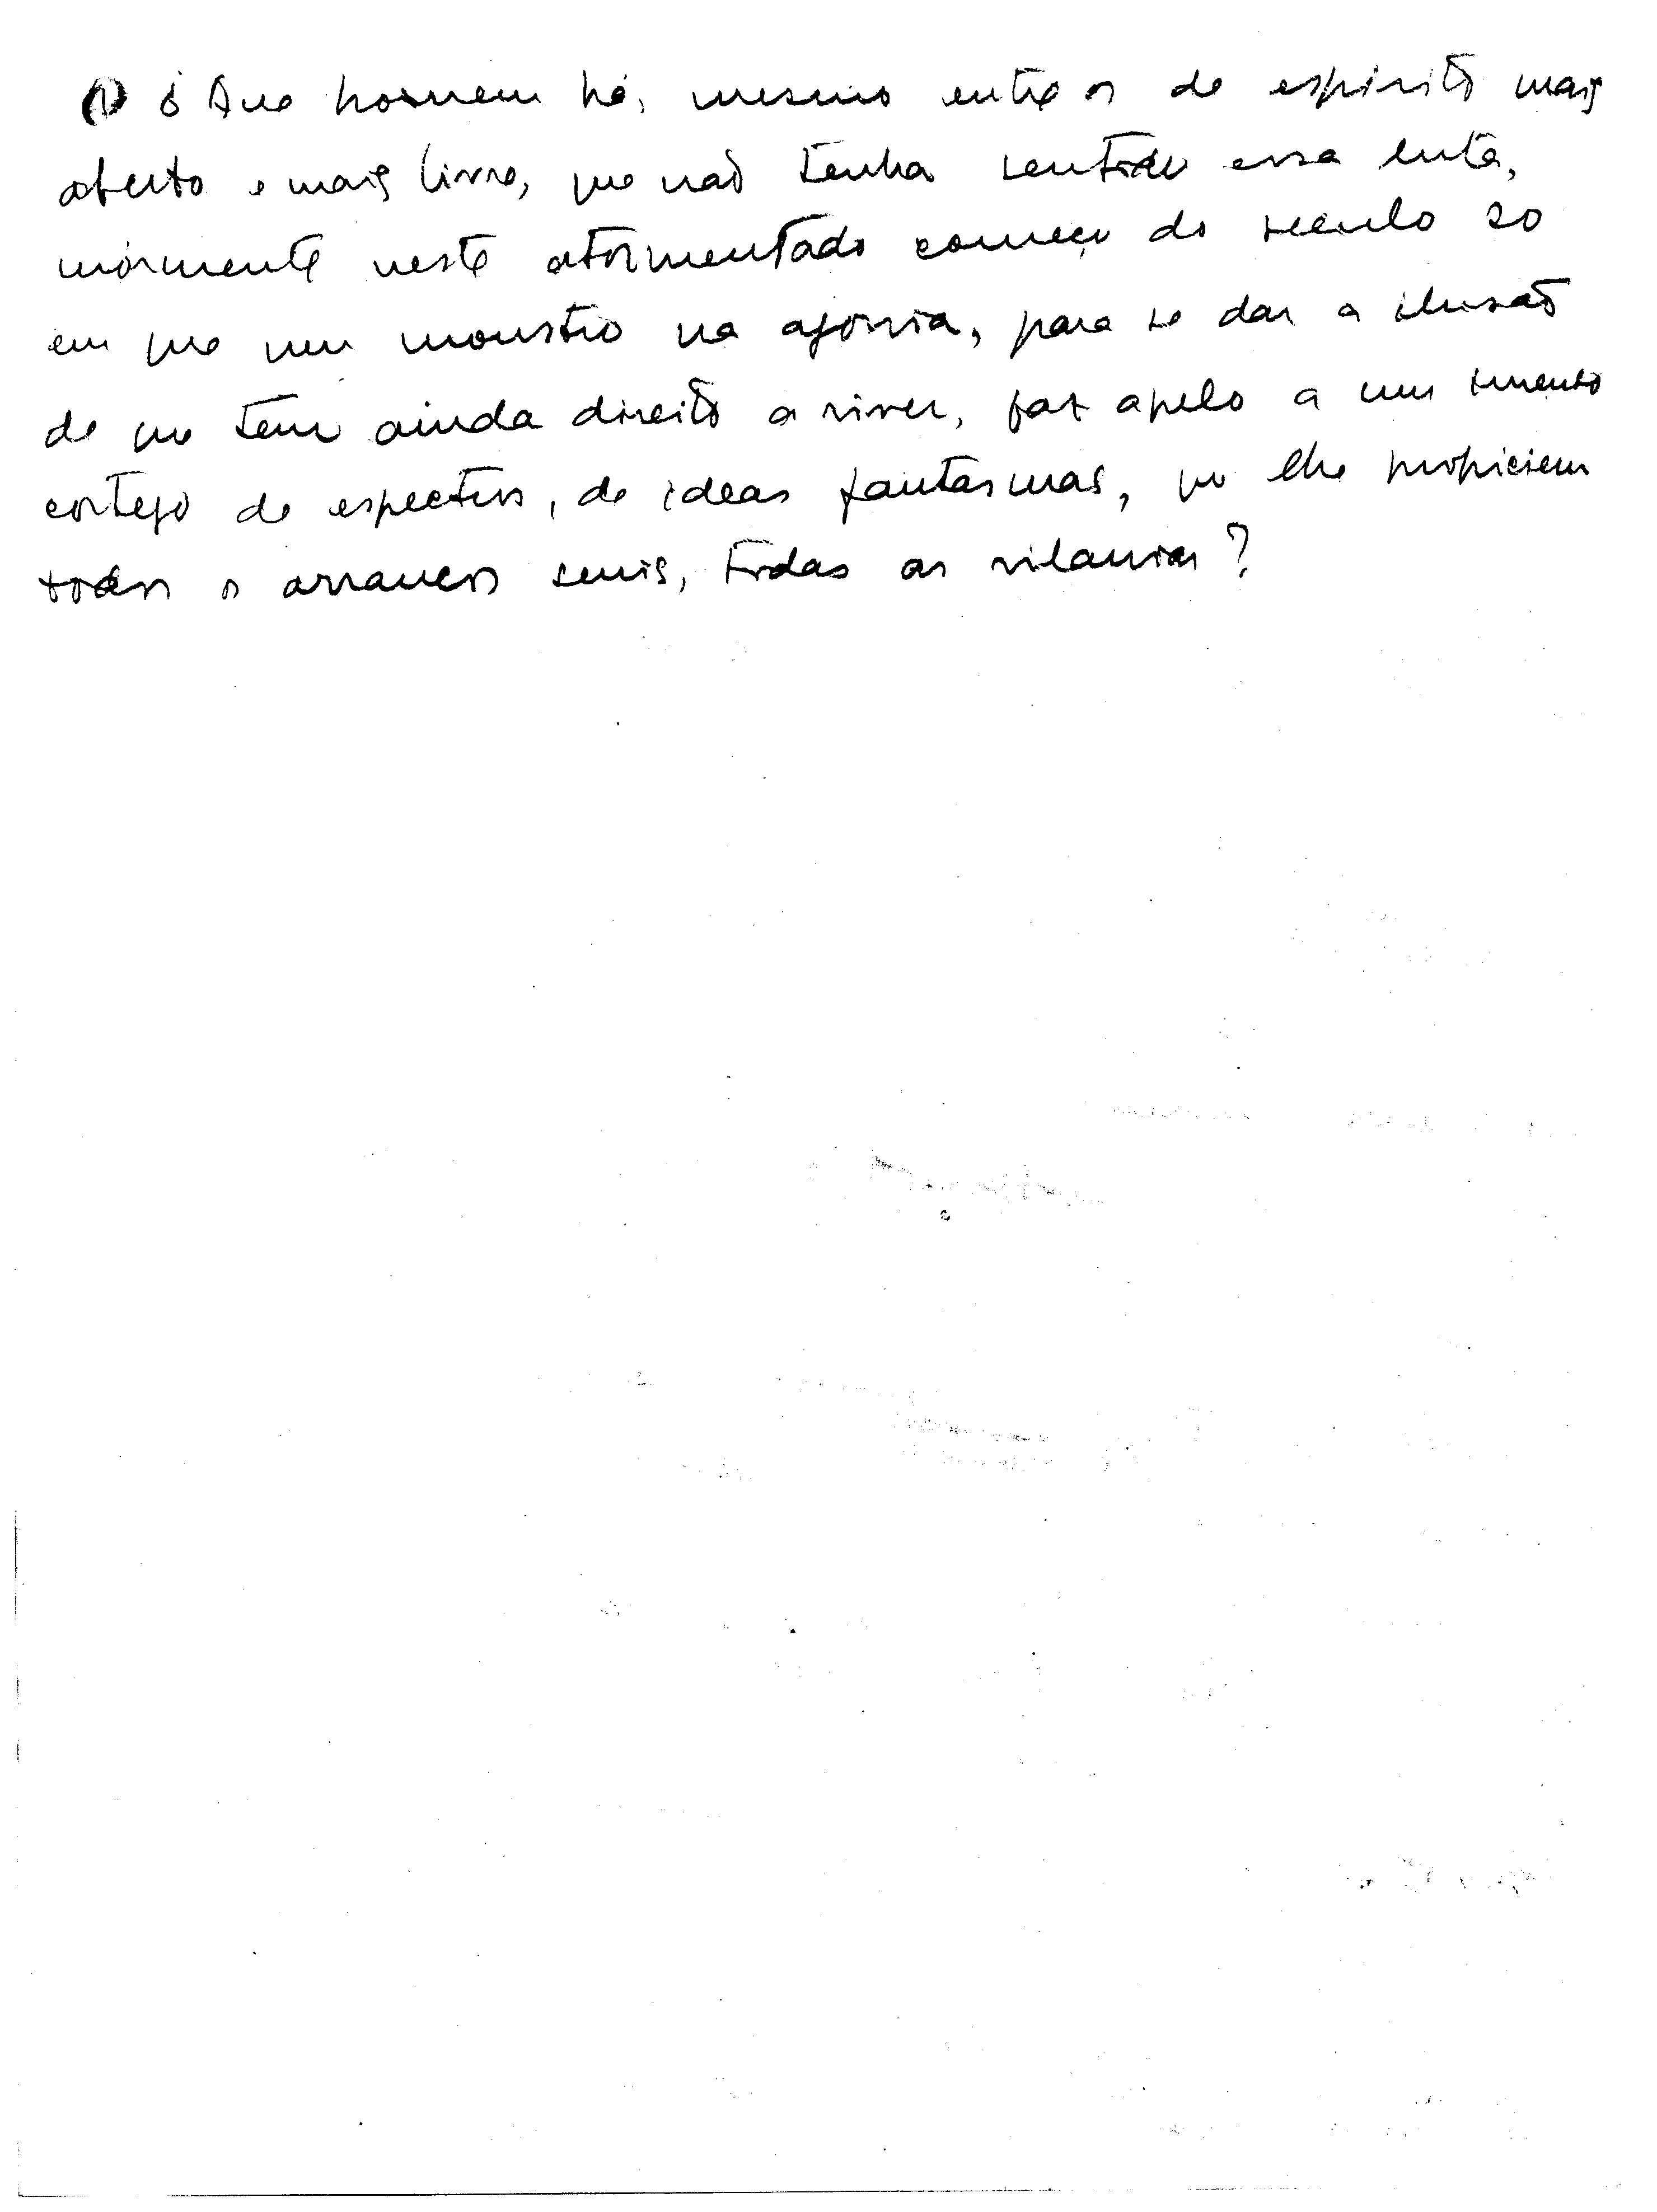 ① ¿ Que homem há, mesmo entre os de espirito mais
aberto e mais livre, que não tenha sentido essa luta,
mórmente neste atormentado começo do seculo 20
em que um monstro na agonia, para se dar a ilusão
de que tem ainda direito a viver, faz apelo a um imenso
cortejo de espectros, de ideas fantasmas, que lhe propiciem
todos os arrancos senis, todas as vilanias?